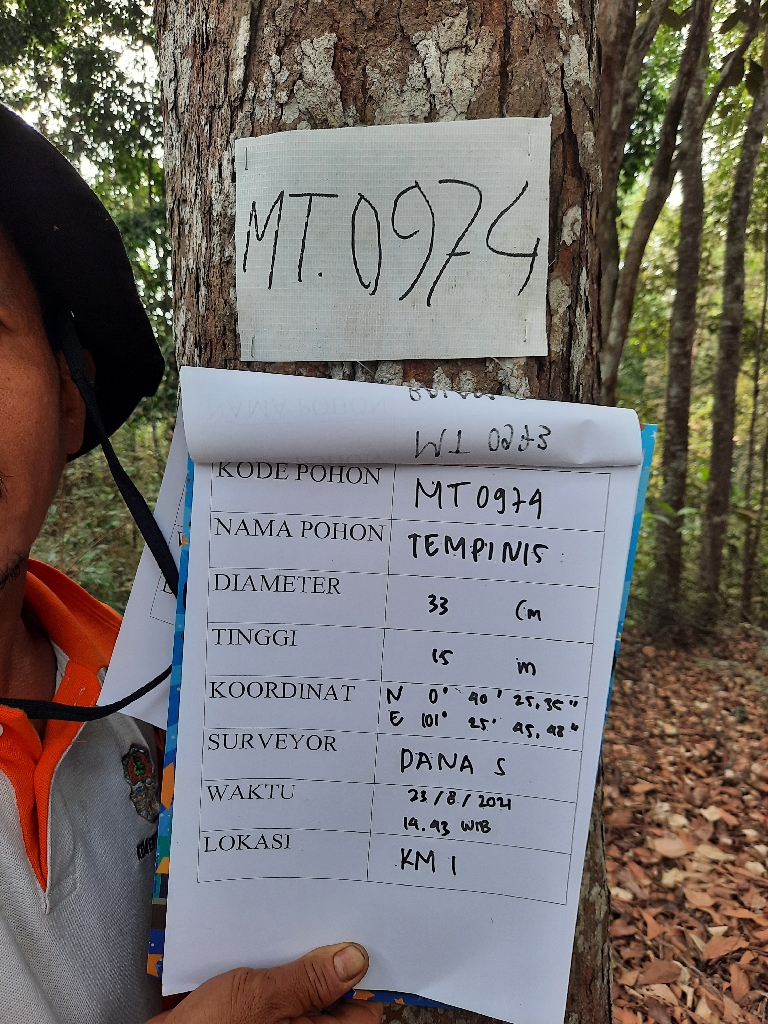 MT. 0974
MT 0973
KODE POHON MT0974
NAMA POHON TEMPINIS
DIAMETER 33 Cm
TINGGI 15 m
KOORDINAT N 0° 40' 25,35"
E 101° 25' 45,48"
SURVEYOR DANA S
WAKTU 23/8/2021
14.43 WIB
LOKASI KM 1